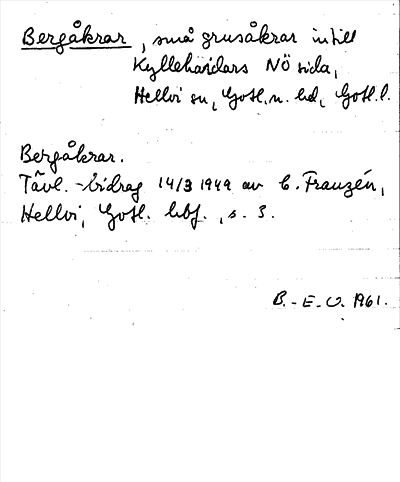 Bergåkrar, små grusåkrar intill
Kyllehajdars NÖ sida,
Hellvi sn, Gotl. n. hd, Gotl. l.
Bergåkrar.
Tävl.-bidrag 14/3 1949 av C. Franzén,
Hellvi, Gotl. hbf., s. 3.
B.-E. O. 1961.